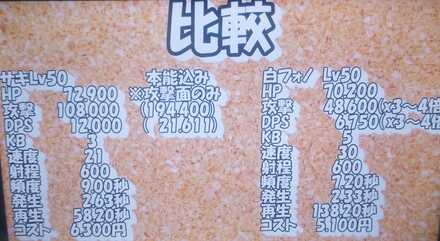 比較
サキLv50
HP 72,900
攻撃 108,000
DPS 12,000
KB 3
速度 21
射程 600
頻度 9.00秒
発生 2.63秒
再生 58.20秒
コスト 6,300円
本能込み
※攻撃面のみ
(194,400)
( 21,611)
白フォノ Lv50
HP 70,200
攻撃 48,600(x3~4倍
DPS 6,750(x3~4倍
KB 5
速度 30
射程 600
頻度 7.20秒
発生 2.33秒
再生 138.20秒
コスト 5,100円